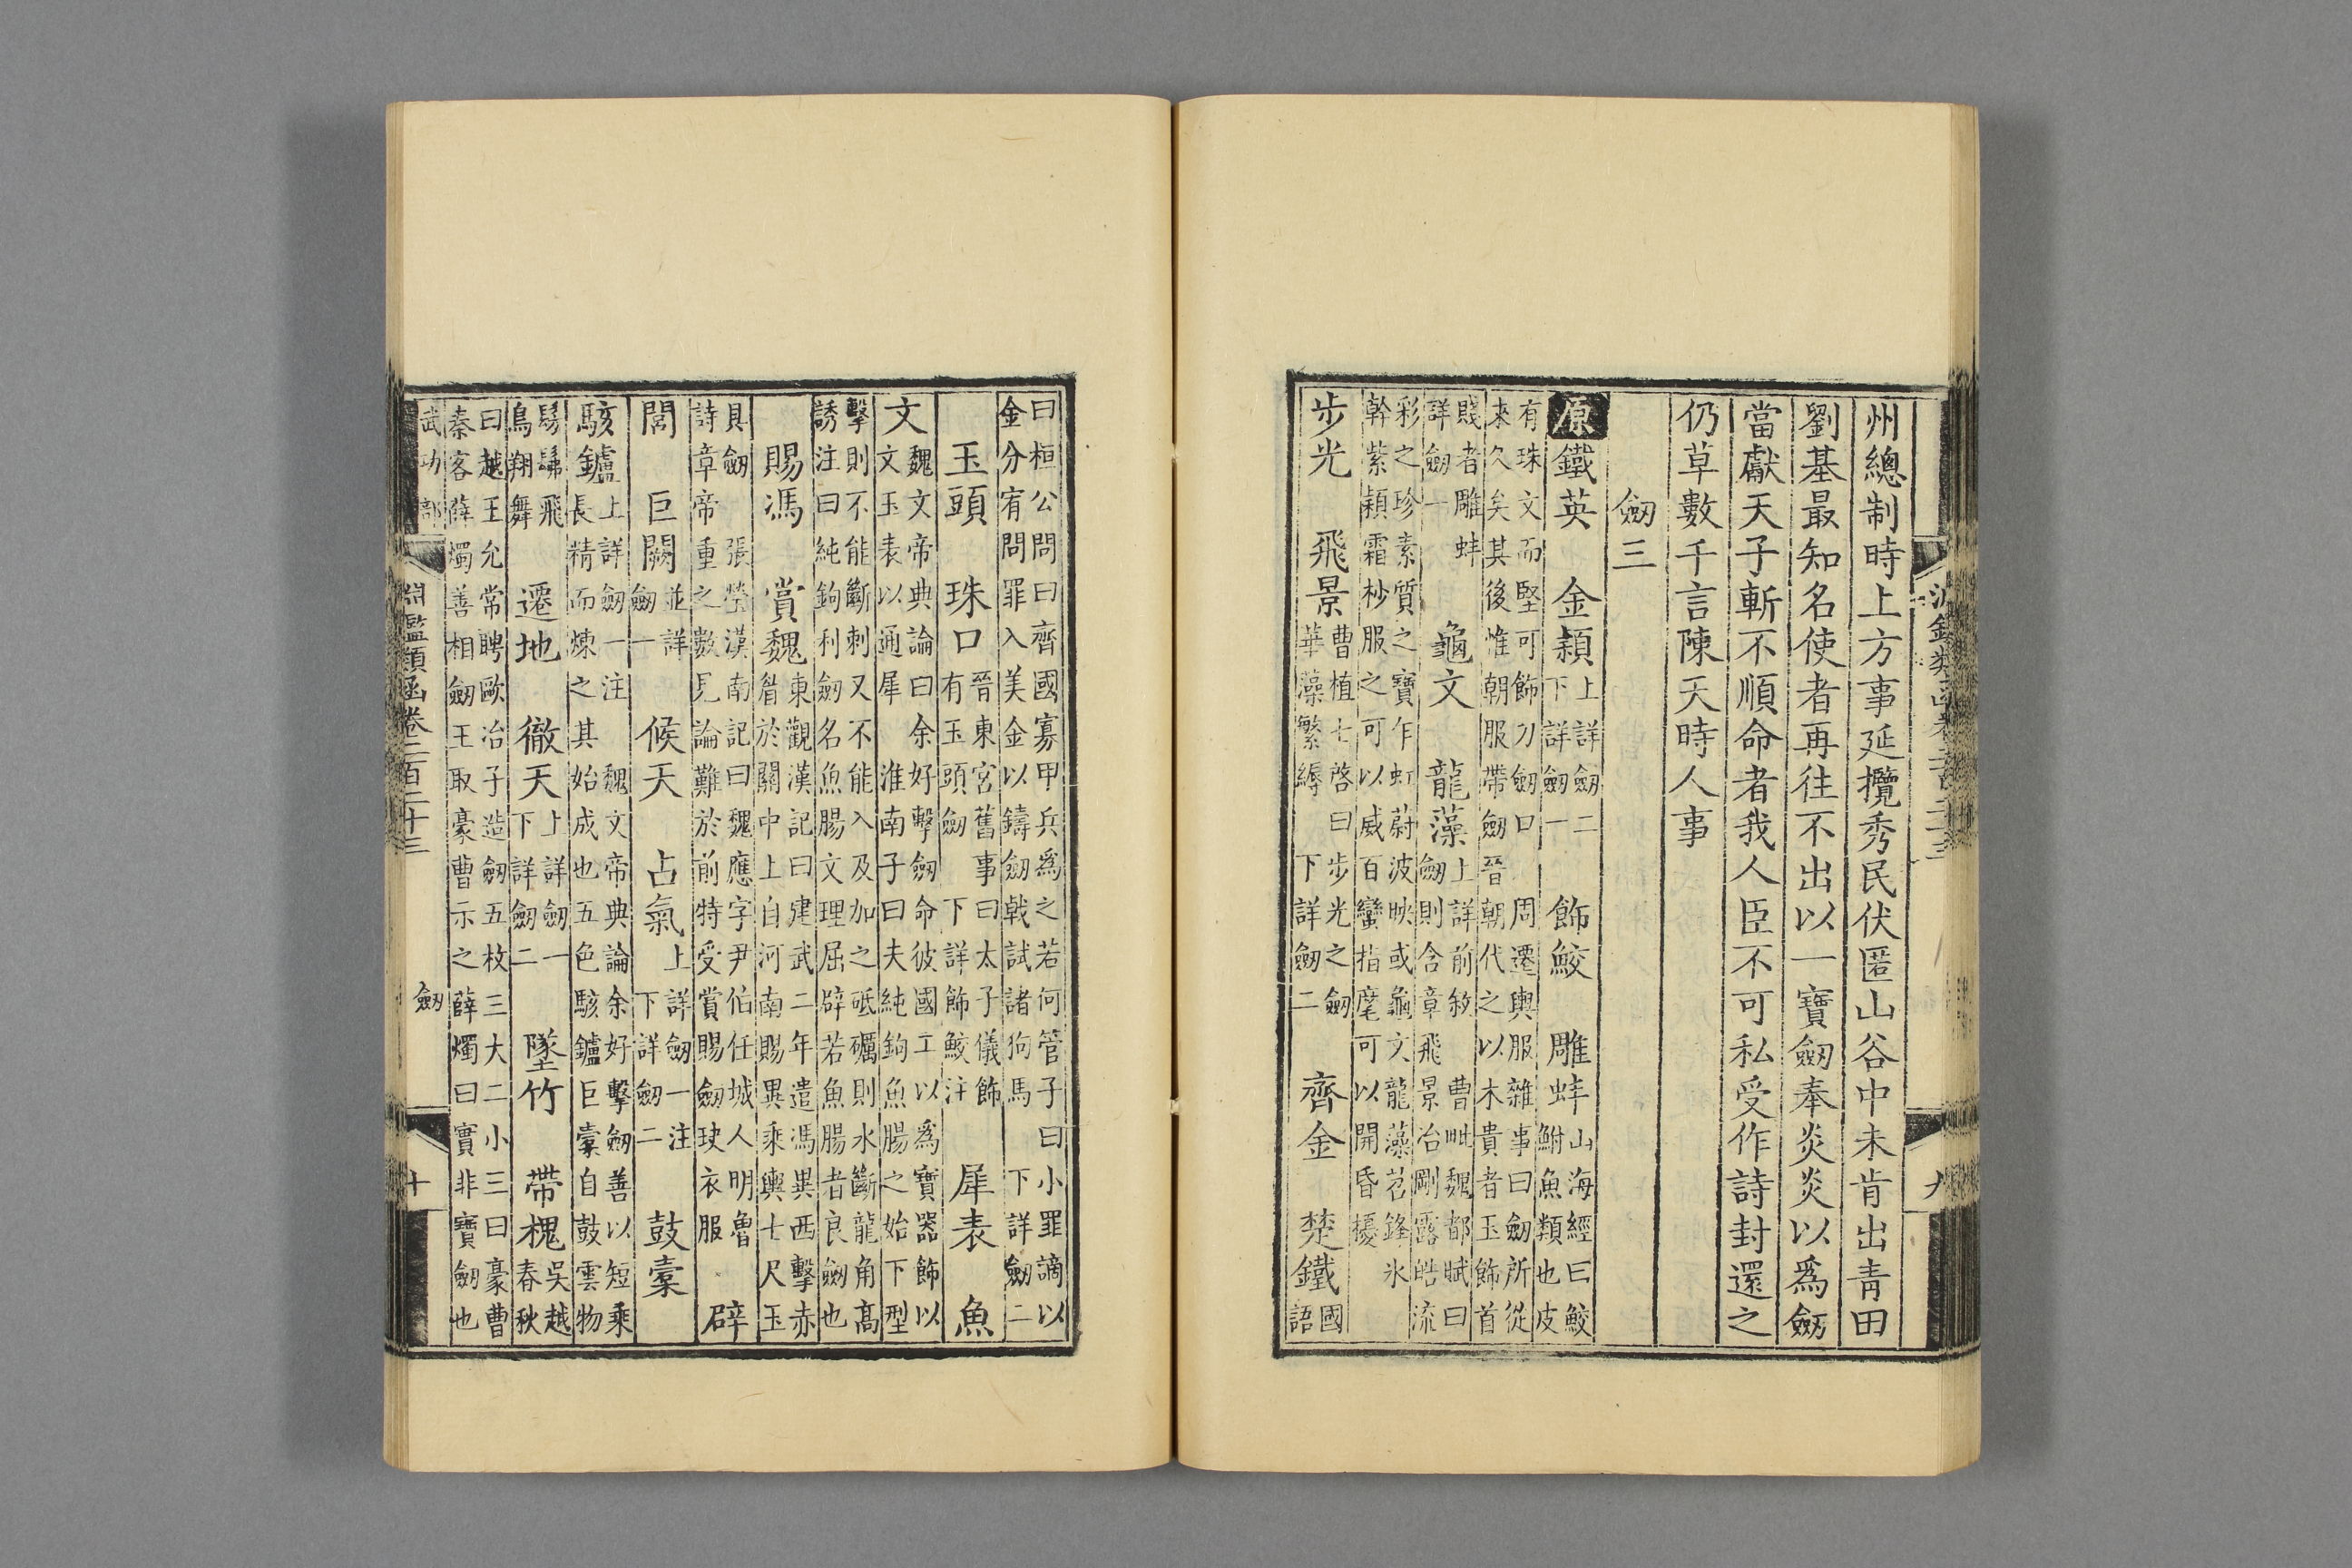 州總制時上方事延攬秀民伏匿山谷中未肯出青田
劉基最知名使者再往不出以一寶劒奉炎炎以爲劒
當獻天子斬不順命者我人臣不可私受作詩封還之
仍草數千言陳天時人事
劒三
原鐵英 金穎 上詳劒二下詳劒一 飾鮫 雕蚌 山海經曰鮫鮒魚類也皮
有珠文而堅可飾刀劒口 周遷輿服雜事曰劒所從
來久矣其後惟朝服帶劒晉朝代之以木貴者玉飾首
賤者雕蚌詳劒一 龜文 龍藻 上詳前敘 曹毗魏都賦曰劒則含章飛景冶剛露皓流
彩之珍素質之寶乍虹蔚波映或龜文龍藻若鋒氷
幹紫穎霜杪服之可以威百蠻指麾可以開昏擾
步光 飛景 曹植七啓曰步光之劒華藻繁縟 下詳劒二 齊金 楚鐵 國語
曰桓公問曰齊國寡甲兵爲之若何管子曰小罪謫以
金分宥問罪入美金以鑄劒戟試諸狗馬 下詳劒二
玉頭 珠口 晉東宮舊事曰太子儀飾有玉頭劒 下詳飾鮫注 犀表 魚
文 魏文帝典論曰余好擊劒命彼國工以爲寶器飾以文玉表以通犀 淮南子曰夫純鉤魚腸之始下型
擊則不能斷刺又不能入及加之砥礪則水斷龍角高
誘注曰純鉤利劒名魚腸文理屈辟若魚腸者良劒也
賜馮 賞魏 東觀漢記曰建武二年遣馮異西擊赤眉於關中上自河南賜異乘輿七尺玉
具劒 張瑩漢南記曰魏應字尹伯任城人明魯詩章帝重之數見論難於前特受賞賜劒玦衣服 辟
閭 巨闕 並詳劒一 候天 占氣 上詳劒一注下詳劒二 鼓橐
駭鑪 上詳劒一注 魏文帝典論余好擊劒善以短乘長精而煉之其始成也五色駭鑪巨橐自鼓雲物
髣髴飛鳥翔舞 遷地 徹天 上詳劒一下詳劒二 墜竹 帶槐 吳越春秋
曰越王允常聘歐冶子造劒五枚三大二小三曰豪曹
秦客薛燭善相劒王取豪曹示之薛燭曰實非寶劒也
武功部 淵鑑類函卷二百二十三 劒 十